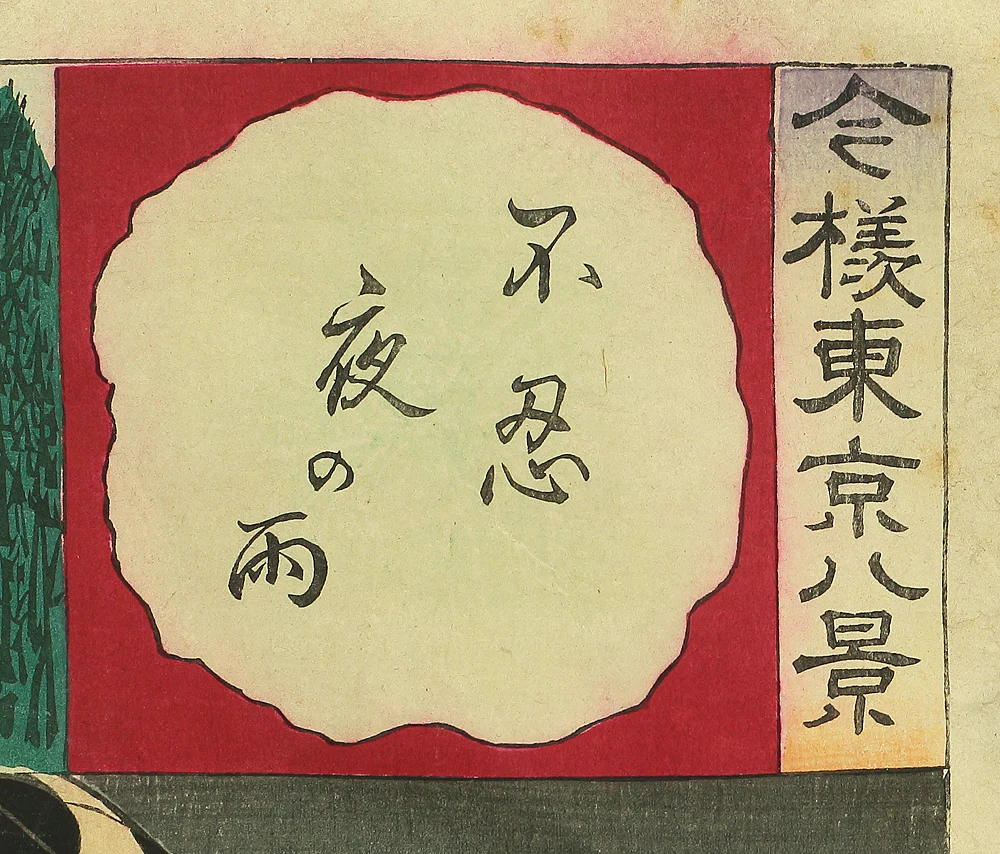 今様東京八景
不忍
夜の雨